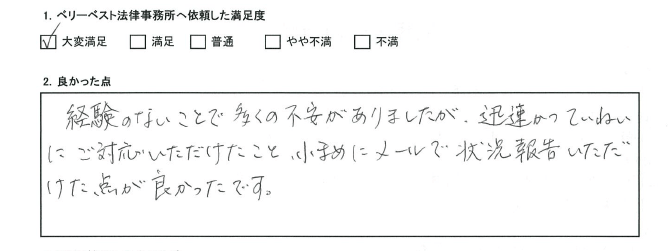 1. ベリーベスト法律事務所へ依頼した満足度
大変満足 満足 普通 やや不満 不満
2. 良かった点
経験のないことで多くの不安がありましたが、迅速かつていねい
にご対応いただけたこと、小まめにメールで状況報告いただだ
けた点が良かったです。